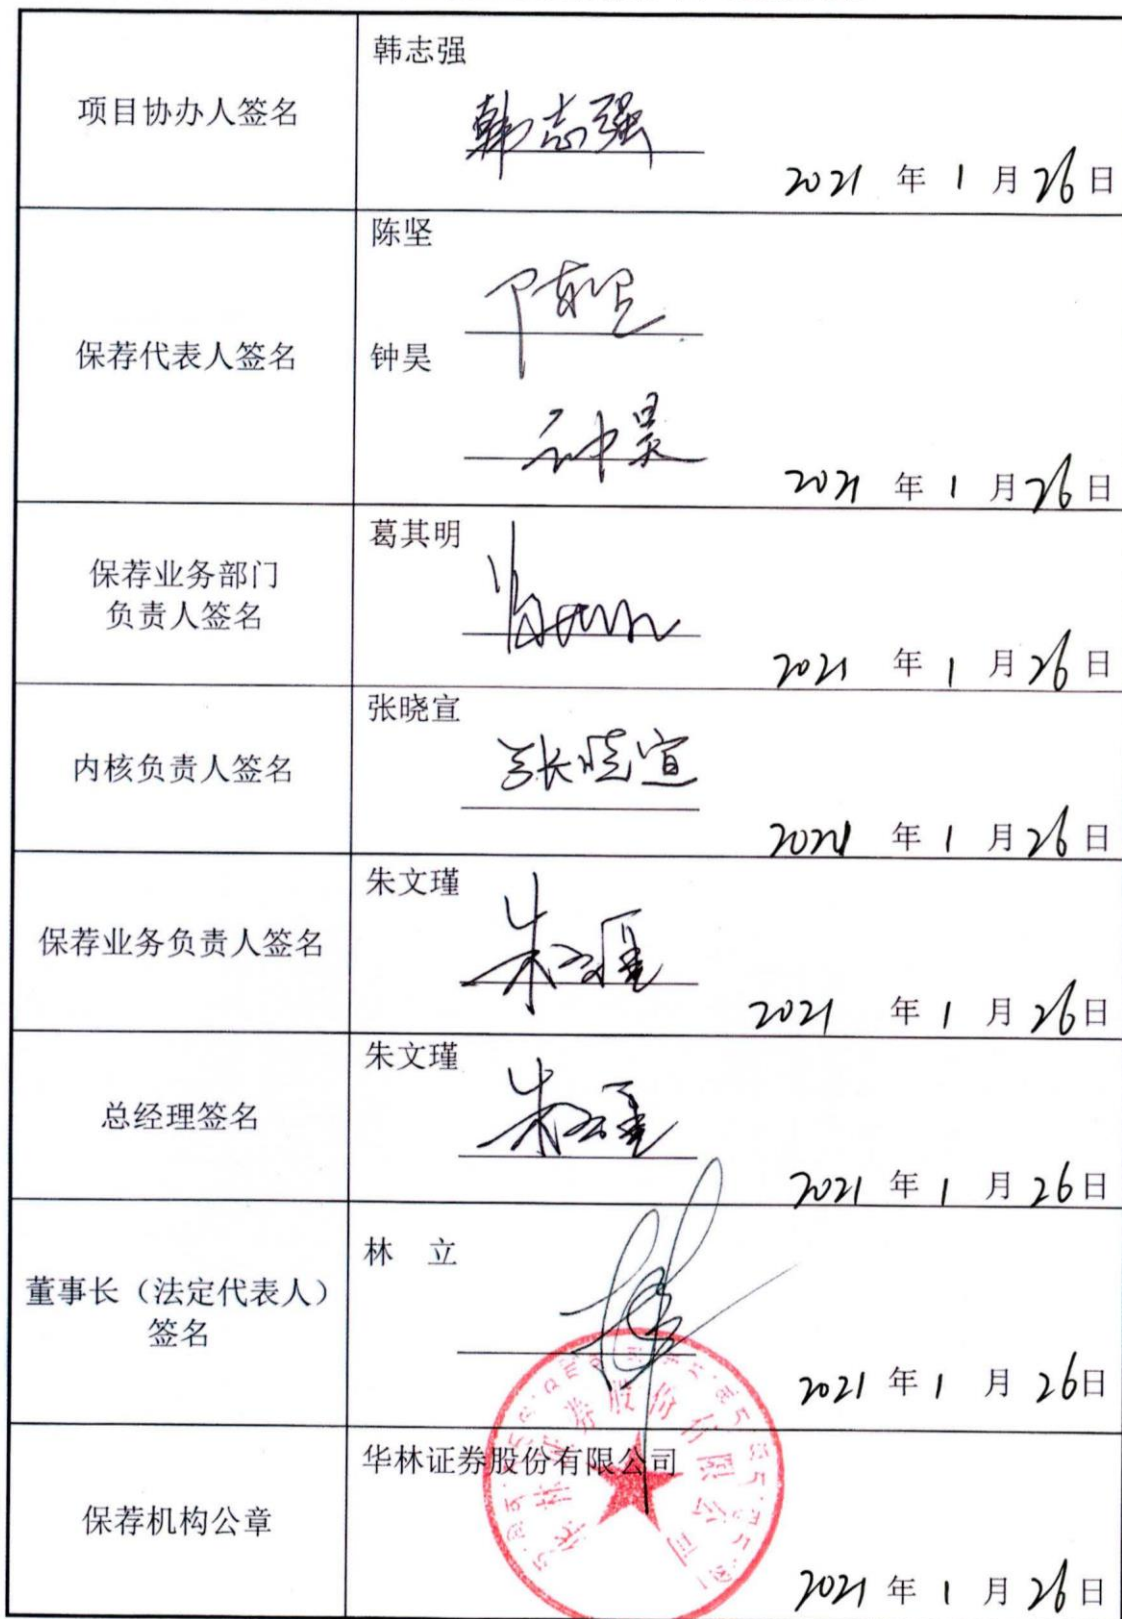 项目协办人签名
韩志强
韩志强
2021 年 1 月 26 日
保荐代表人签名
陈坚
陈坚
钟昊
钟昊
2021 年 1 月 26 日
保荐业务部门
负责人签名
葛其明
2021 年 1 月 26 日
内核负责人签名
张晓宣
张晓宣
2021 年 1 月 26 日
保荐业务负责人签名
朱文瑾
朱文瑾
2021 年 1 月 26 日
总经理签名
朱文瑾
朱文瑾
2021 年 1 月 26 日
董事长（法定代表人）
签名
林 立
2021 年 1 月 26 日
保荐机构公章
华林证券股份有限公司
华林证券股份有限公司
2021 年 1 月 26 日